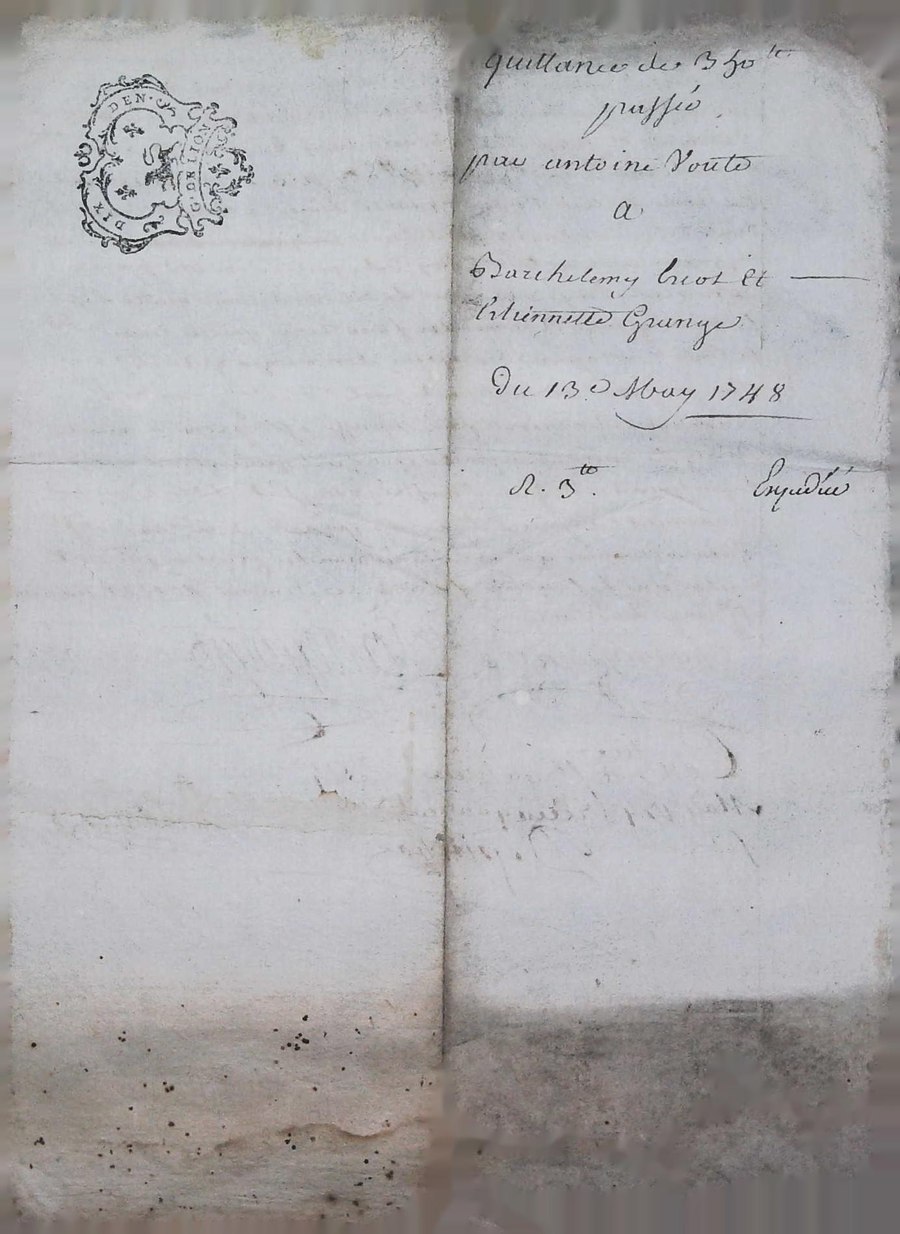 DIX DEN.
G. ON LION
quittance de 350 tt
passée
par antoine Voute
A
Barthelemy Criot Et
Ethiennette Grange
Du 13e May 1748
R. 3 tt.
Expediée